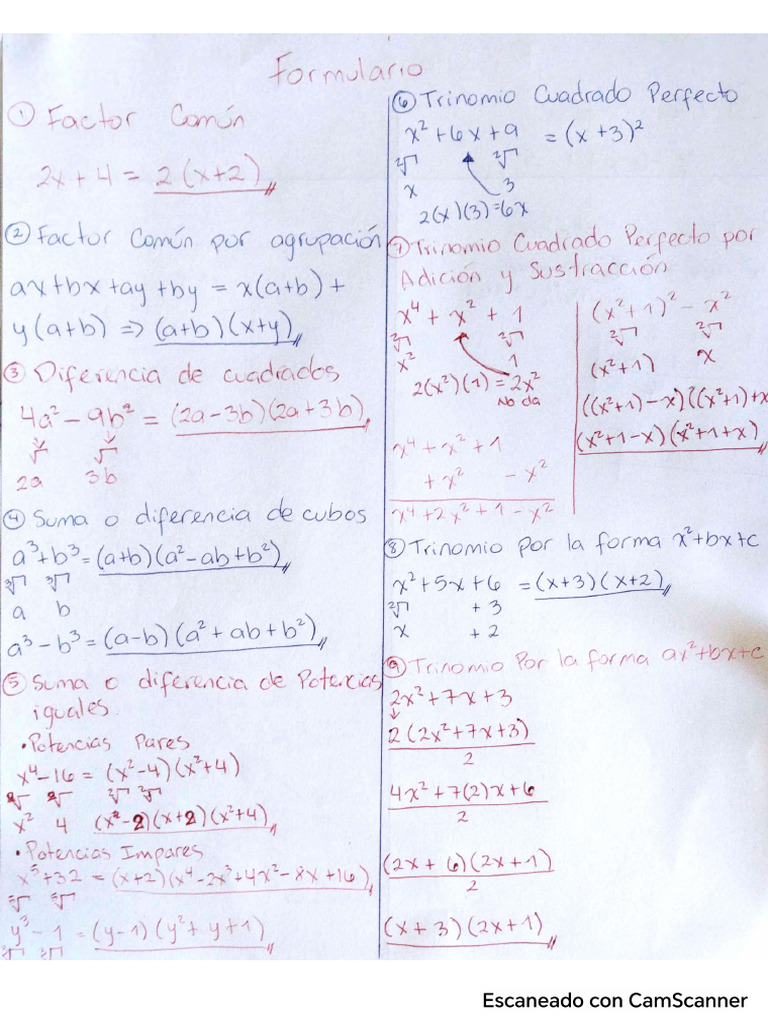 Formulario
① Factor Común
2x + 4 = 2 (x+2)
② Factor Común por agrupación
ax+bx+ay+by = x(a+b)+
y(a+b) => (a+b)(x+y)
③ Diferencia de cuadrados
4a² - 9b² = (2a-3b)(2a+3b)
√ √
2a 3b
④ Suma o diferencia de cubos
a³+b³=(a+b)(a²-ab+b²)
∛ ∛
a b
a³-b³=(a-b)(a²+ab+b²)
⑤ Suma o diferencia de Potencias
iguales.
• Potencias Pares
x⁴-16 = (x²-4)(x²+4)
²√ ²√ ²√ ²√
x² 4 (x-2)(x+2)(x²+4)
• Potencias Impares
x⁵+32 = (x+2)(x⁴-2x³+4x²-8x+16)
⁵√ ⁵√
y³-1 = (y-1)(y²+y+1)
³√ ³√
⑥ Trinomio Cuadrado Perfecto
x²+6x+9 = (x+3)²
²√ ²√
x 3
2(x)(3)=6x
⑦ Trinomio Cuadrado Perfecto por
Adición y Sustracción
x⁴ + x² + 1
²√ ²√
x² 1
2(x²)(1)=2x²
No da
x⁴+x²+1
+x² -x²
x⁴+2x²+1-x²
(x²+1)²-x²
²√ ²√
(x²+1) x
((x²+1)-x)((x²+1)+x
(x²+1-x)(x²+1+x)
⑧ Trinomio Por la forma x²+bx+c
x²+5x+6 =(x+3)(x+2)
²√ +3
x +2
⑨ Trinomio Por la forma ax²+bx+c
2x²+7x+3
2(2x²+7x+3)
2
4x²+7(2)x+6
2
(2x+6)(2x+1)
2
(x+3)(2x+1)
Escaneado con CamScanner